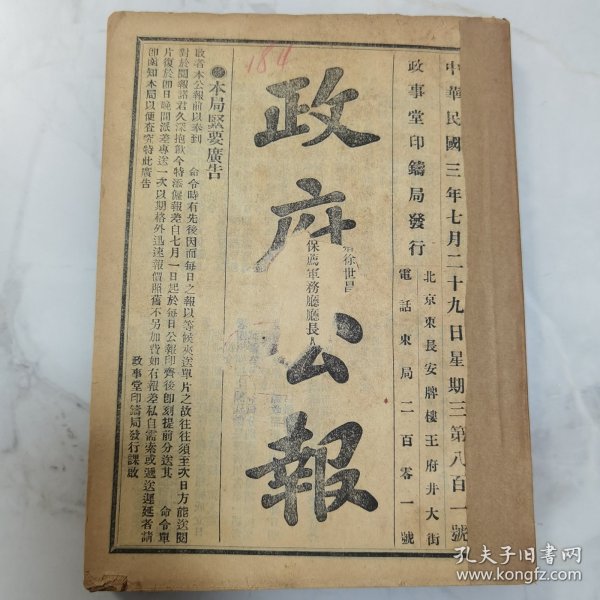 中華民國三年七月二十九日星期三第八百一號
政事堂印鑄局發行
北京東長安牌樓王府井大街
電話東局二百零一號
184
政府公報
徐世昌
保薦軍務廳廳長人
本局緊要廣告
敬者本公報前以奉到 命令時有先後因而每日之報以等候夾送單片之故往往須至次日方能送閱
對於閱報諸君久深抱歉今特派僱報差自七月一日起於每日公報印齊後卽刻提前分送其 命令單
片復於卽日晚間派差專送一次以期格外迅速報價照舊不另加費如有報差私自需索或遞送遲延者請
卽函知本局以便查究特此廣告
政事堂印鑄局發行課啟
孔夫子旧书网
www.kongfz.com